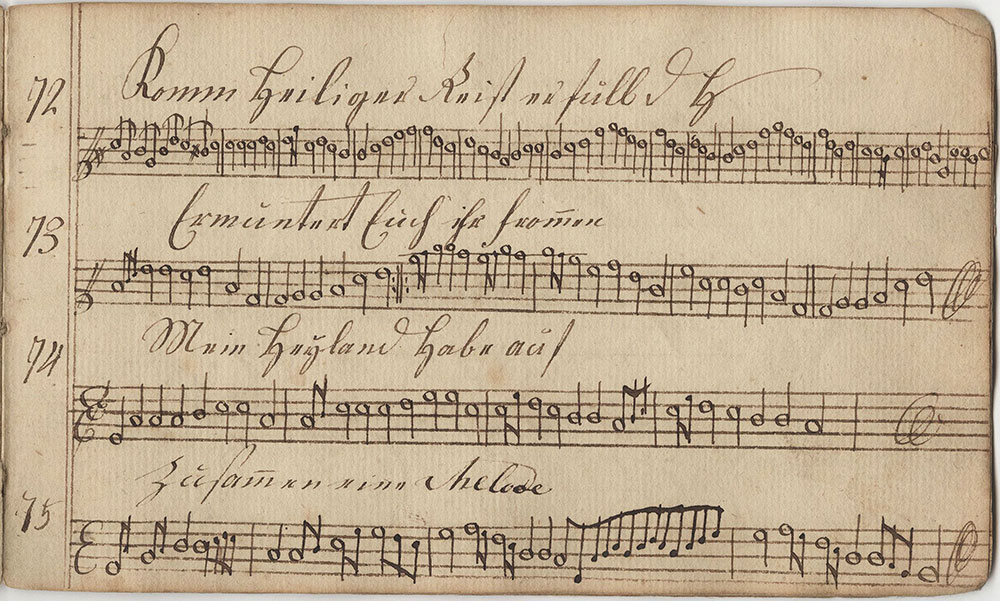 72 Komm Heiliger Geist erfüll d H
73 Ermuntert Euch ihr frommen
74 Mein Heyland Habe auf
75 Zusammen eine Melode